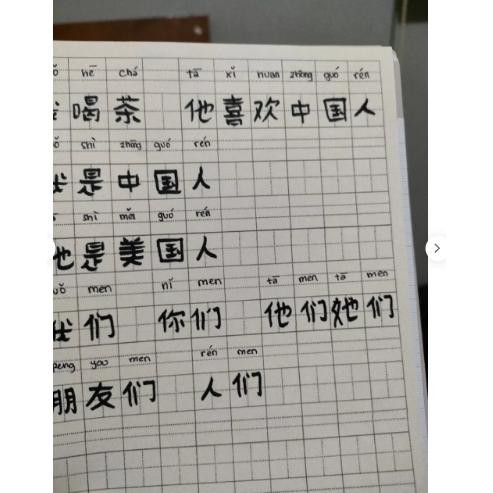 hē chá tā xǐ huan zhōng guó rén
喝茶 他喜欢中国人
shì zhōng guó rén
我是中国人
shì měi guó rén
他是美国人
wǒ men nǐ men tā men tā men
我们 你们 他们她们
peng you men rén men
朋友们 人们